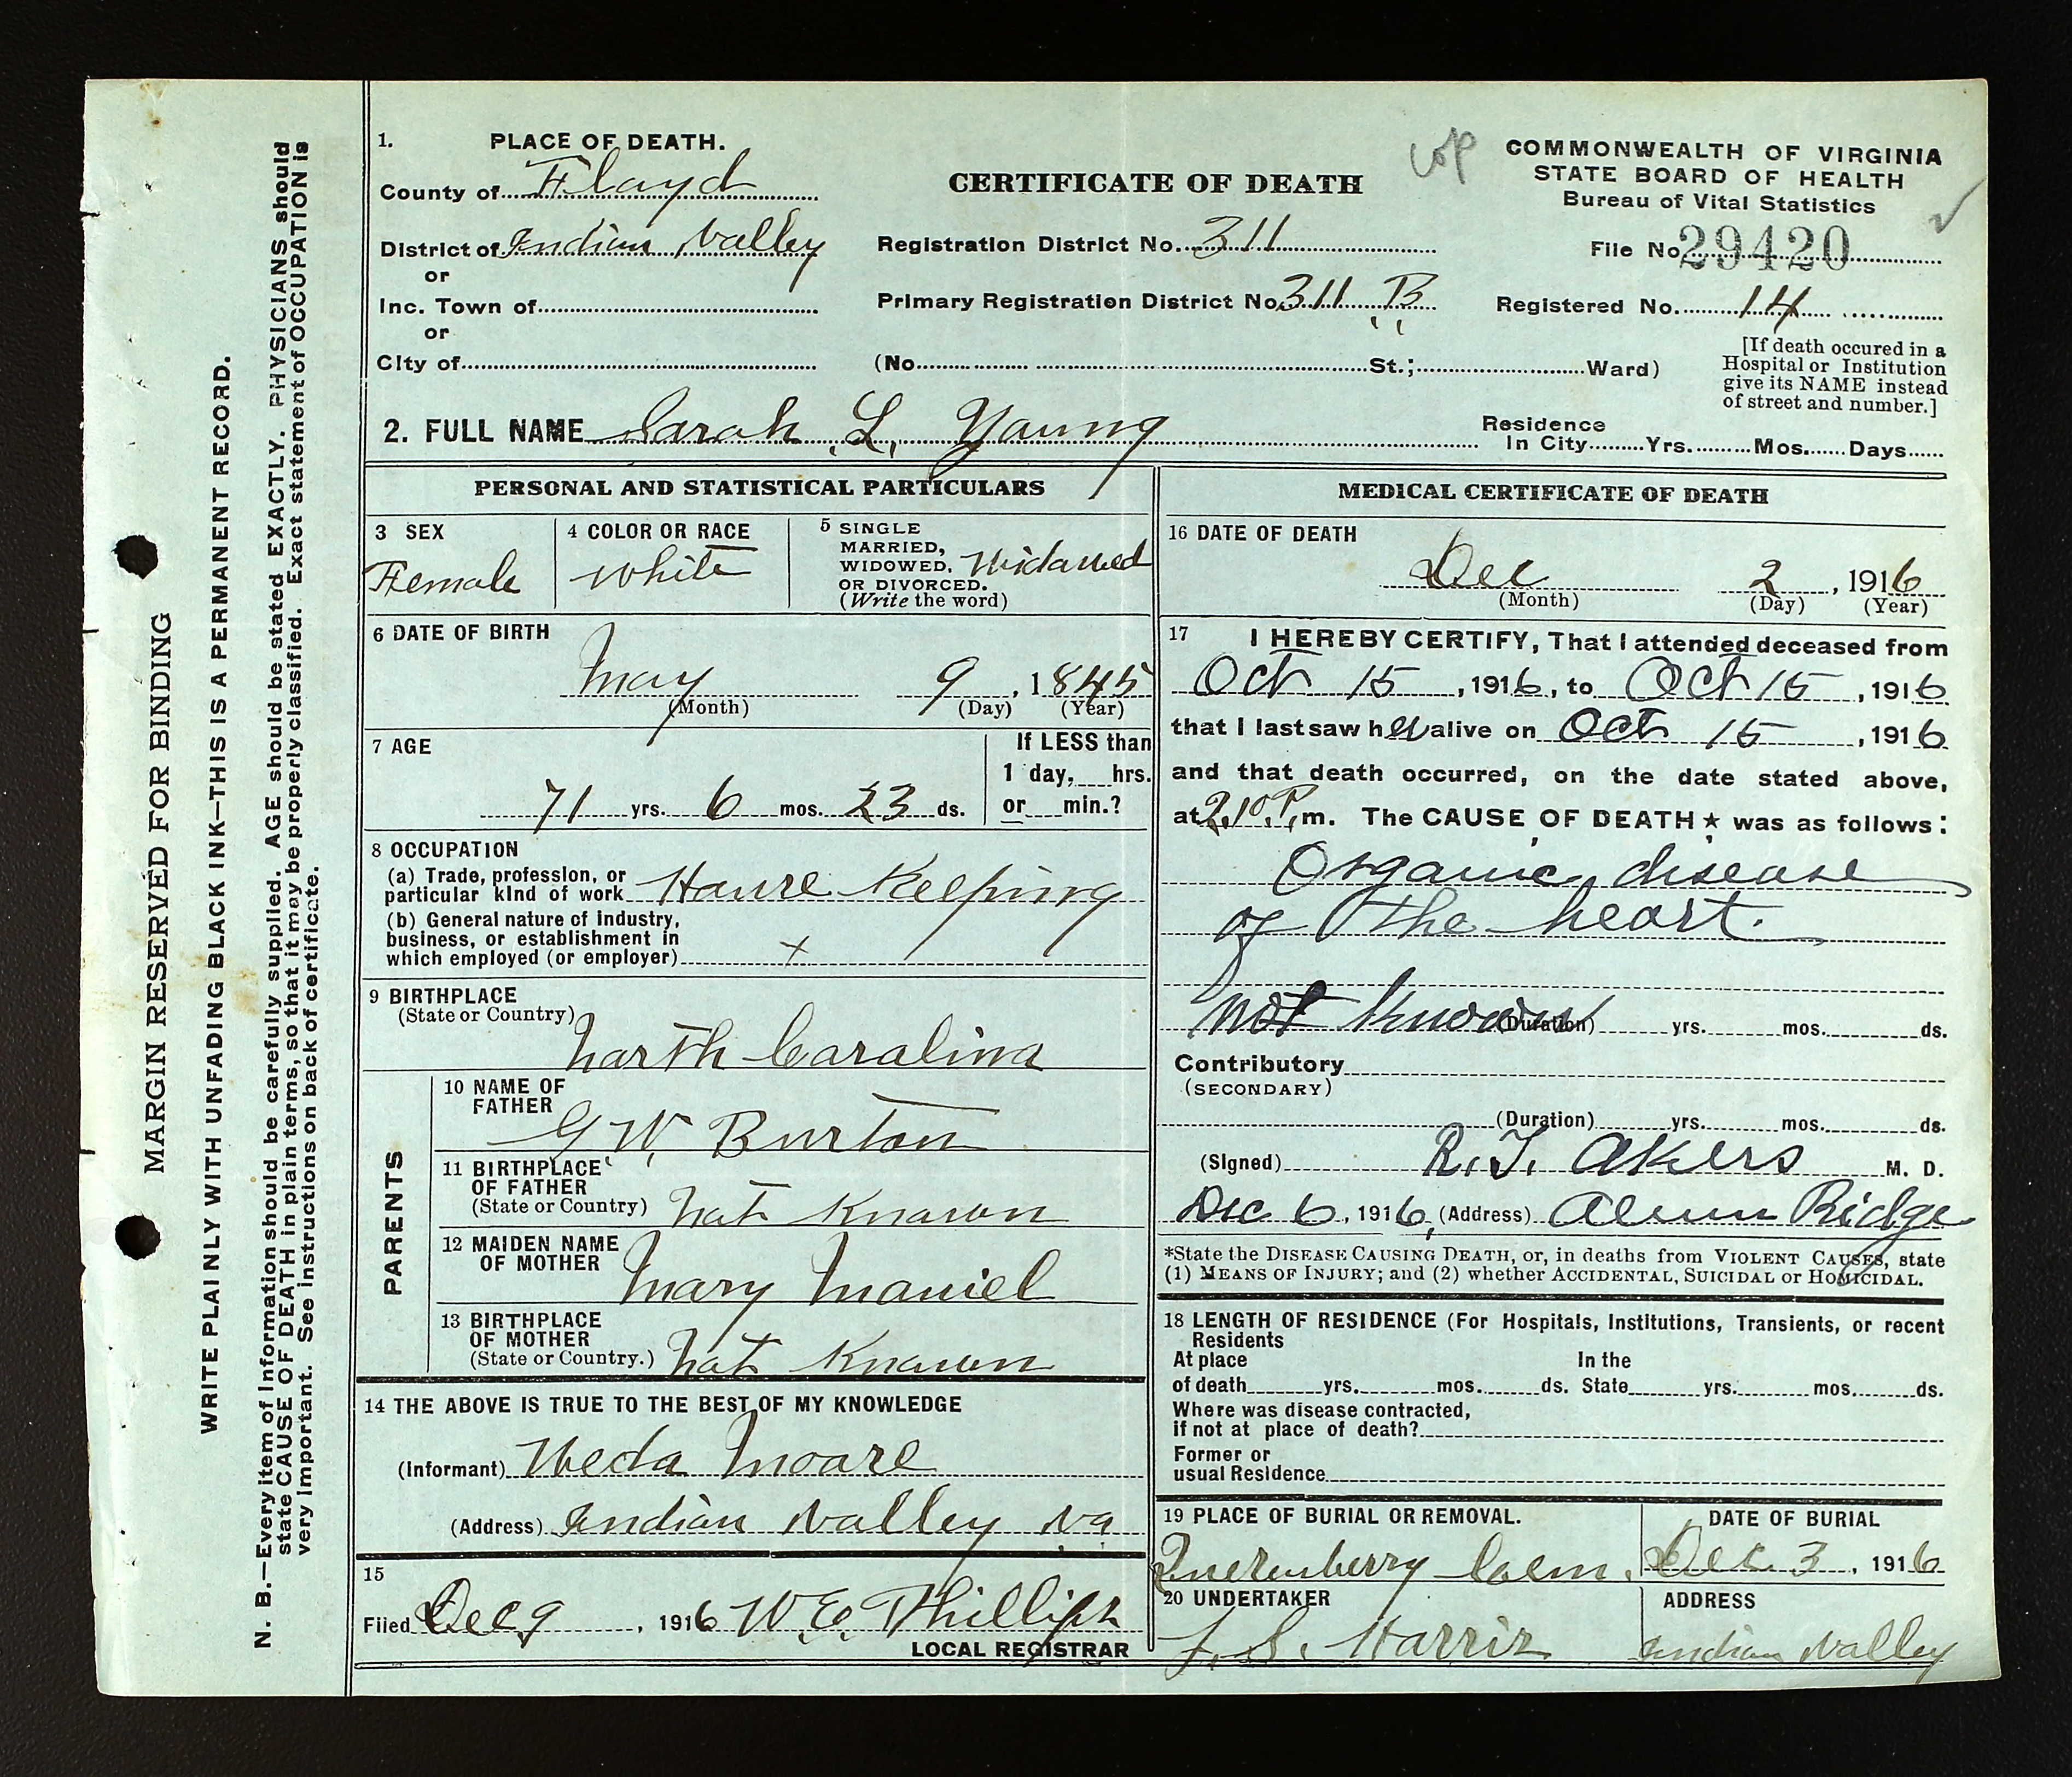 MARGIN RESERVED FOR BINDING
WRITE PLAINLY WITH UNFADING BLACK INK—THIS IS A PERMANENT RECORD.
N. B.—Every item of information should be carefully supplied. AGE should be stated EXACTLY. PHYSICIANS should
state CAUSE OF DEATH in plain terms, so that it may be properly classified. Exact statement of OCCUPATION is
very important. See instructions on back of certificate.
1. PLACE OF DEATH.
County of Floyd
District of Indian Valley
or
Inc. Town of
or
City of
CERTIFICATE OF DEATH
Registration District No. 311
Primary Registration District No. 311 B
(No. St.; Ward)
COMMONWEALTH OF VIRGINIA
STATE BOARD OF HEALTH
Bureau of Vital Statistics
File No. 29420
Registered No. 14
[If death occured in a
Hospital or Institution
give its NAME instead
of street and number.]
2. FULL NAME Sarah L. Young
Residence
In City Yrs. Mos. Days
PERSONAL AND STATISTICAL PARTICULARS
3 SEX
Female
4 COLOR OR RACE
White
5 SINGLE
MARRIED,
WIDOWED,
OR DIVORCED.
(Write the word)
Widowed
6 DATE OF BIRTH
May 9, 1845
(Month) (Day) (Year)
7 AGE
71 yrs. 6 mos. 23 ds.
If LESS than
1 day, hrs.
or min.?
8 OCCUPATION
(a) Trade, profession, or
particular kind of work House Keeping
(b) General nature of industry,
business, or establishment in
which employed (or employer) x
9 BIRTHPLACE
(State or Country)
North Carolina
PARENTS
10 NAME OF
FATHER
G W. Burton
11 BIRTHPLACE
OF FATHER
(State or Country) Not Known
12 MAIDEN NAME
OF MOTHER
Mary Maniel
13 BIRTHPLACE
OF MOTHER
(State or Country.) Not Known
14 THE ABOVE IS TRUE TO THE BEST OF MY KNOWLEDGE
(Informant) Moore
(Address) Indian Valley Va
15
Filed Dec 9, 1916 W. E. Phillips
LOCAL REGISTRAR
MEDICAL CERTIFICATE OF DEATH
16 DATE OF DEATH
Dec 2, 1916
(Month) (Day) (Year)
17 I HEREBY CERTIFY, That I attended deceased from
Oct 15, 1916, to Oct 15, 1916
that I last saw her alive on Oct 15, 1916
and that death occurred, on the date stated above,
at 2.10 P. m. The CAUSE OF DEATH★ was as follows:
Organic disease
of the heart.
not known (Duration) yrs. mos. ds.
Contributory
(SECONDARY)
(Duration) yrs. mos. ds.
(Signed) R. T. Akers M. D.
Dec 6, 1916, (Address) Alum Ridge
*State the DISEASE CAUSING DEATH, or, in deaths from VIOLENT CAUSES, state
(1) MEANS OF INJURY; and (2) whether ACCIDENTAL, SUICIDAL or HOMICIDAL.
18 LENGTH OF RESIDENCE (For Hospitals, Institutions, Transients, or recent
Residents
At place In the
of death yrs. mos. ds. State yrs. mos. ds.
Where was disease contracted,
if not at place of death?
Former or
usual Residence
19 PLACE OF BURIAL OR REMOVAL.
Cem.
DATE OF BURIAL
Dec. 3, 1916
20 UNDERTAKER
Harris
ADDRESS
Indian Valley